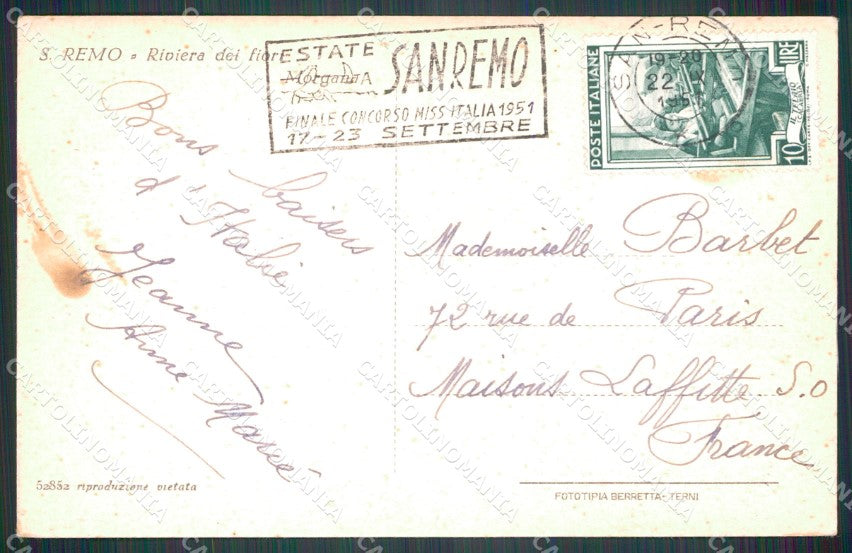 S. REMO - Riviera dei fiori
ESTATE
SANREMO
FINALE CONCORSO MISS ITALIA 1951
17-23 SETTEMBRE
SAN-REMO
19-20
22
POSTE ITALIANE
10 LIRE
Bons baisers
d'Italie
Jeanne
Anne Marie
Mademoiselle Barbet
72 rue de Paris
Maisons Laffitte S.O
France
52852 riproduzione vietata
FOTOTIPIA BERRETTA-TERNI
CARTOLINOMANIA